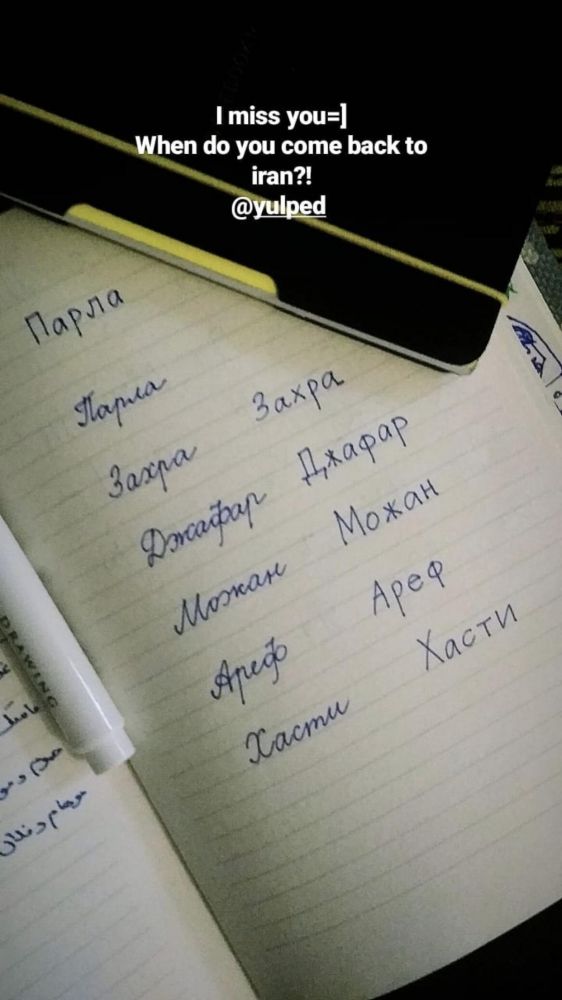 I miss you=]
When do you come back to
iran?!
@yulped
Парла
Парла
Захра Захра
Джафар Джафар
Можан Можан
Ареф Ареф
Хасти Хасти
DRAWING